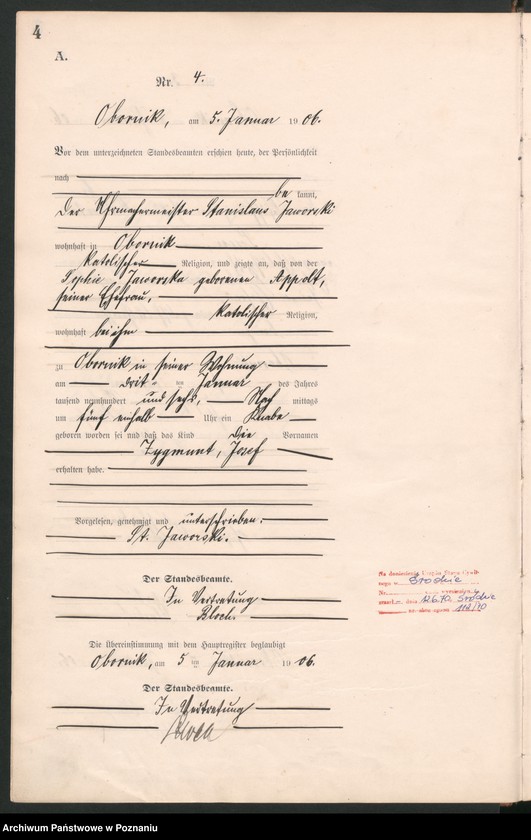 4
A.
Nr. 4.
Obornik, am 5. Januar 1906.
Vor dem unterzeichneten Standesbeamten erschien heute, der Persönlichkeit
nach
bekannt,
der Uhrmachermeister Stanislaus Jaworski
wohnhaft in Obornik
katolischer Religion, und zeigte an, daß von der
Sophie Jaworska geborenen Appolt,
seiner Ehefrau,
katolischer Religion,
wohnhaft bei ihm
zu Obornik in seiner Wohnung
am drit-ten Januar des Jahres
tausend neunhundert und sechs, Nachmittags
um fünf einhalb Uhr ein Knabe
geboren worden sei und daß das Kind die Vornamen
Zygmunt, Josef
erhalten habe.
Vorgelesen, genehmigt und unterschrieben:
St. Jaworski.
Der Standesbeamte.
In Vertretung
Bloch.
Die Übereinstimmung mit dem Hauptregister beglaubigt
Obornik, am 5 ten Januar 1906.
Der Standesbeamte.
In Vertretung
Bloch
Na doniesienie Urzędu Stanu Cywil-
nego w Środzie
Nr.
zmarł dnia 12.6.70 Środzie
Archiwum Państwowe w Poznaniu